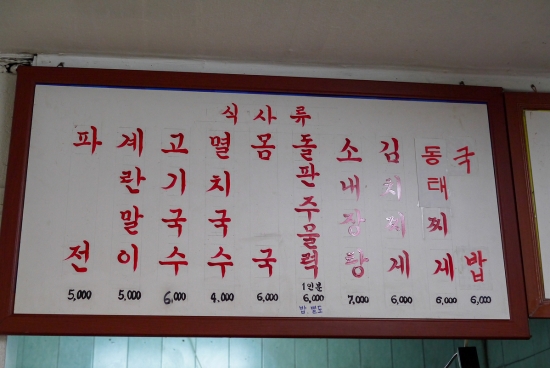 식사류
파전 5,000
계란말이 5,000
고기국수 6,000
멸치국수 4,000
몸국 6,000
돌판주물럭 1인분 6,000 밥 별도
소내장탕 7,000
김치찌게 6,000
동태찌게 6,000
국밥 6,000